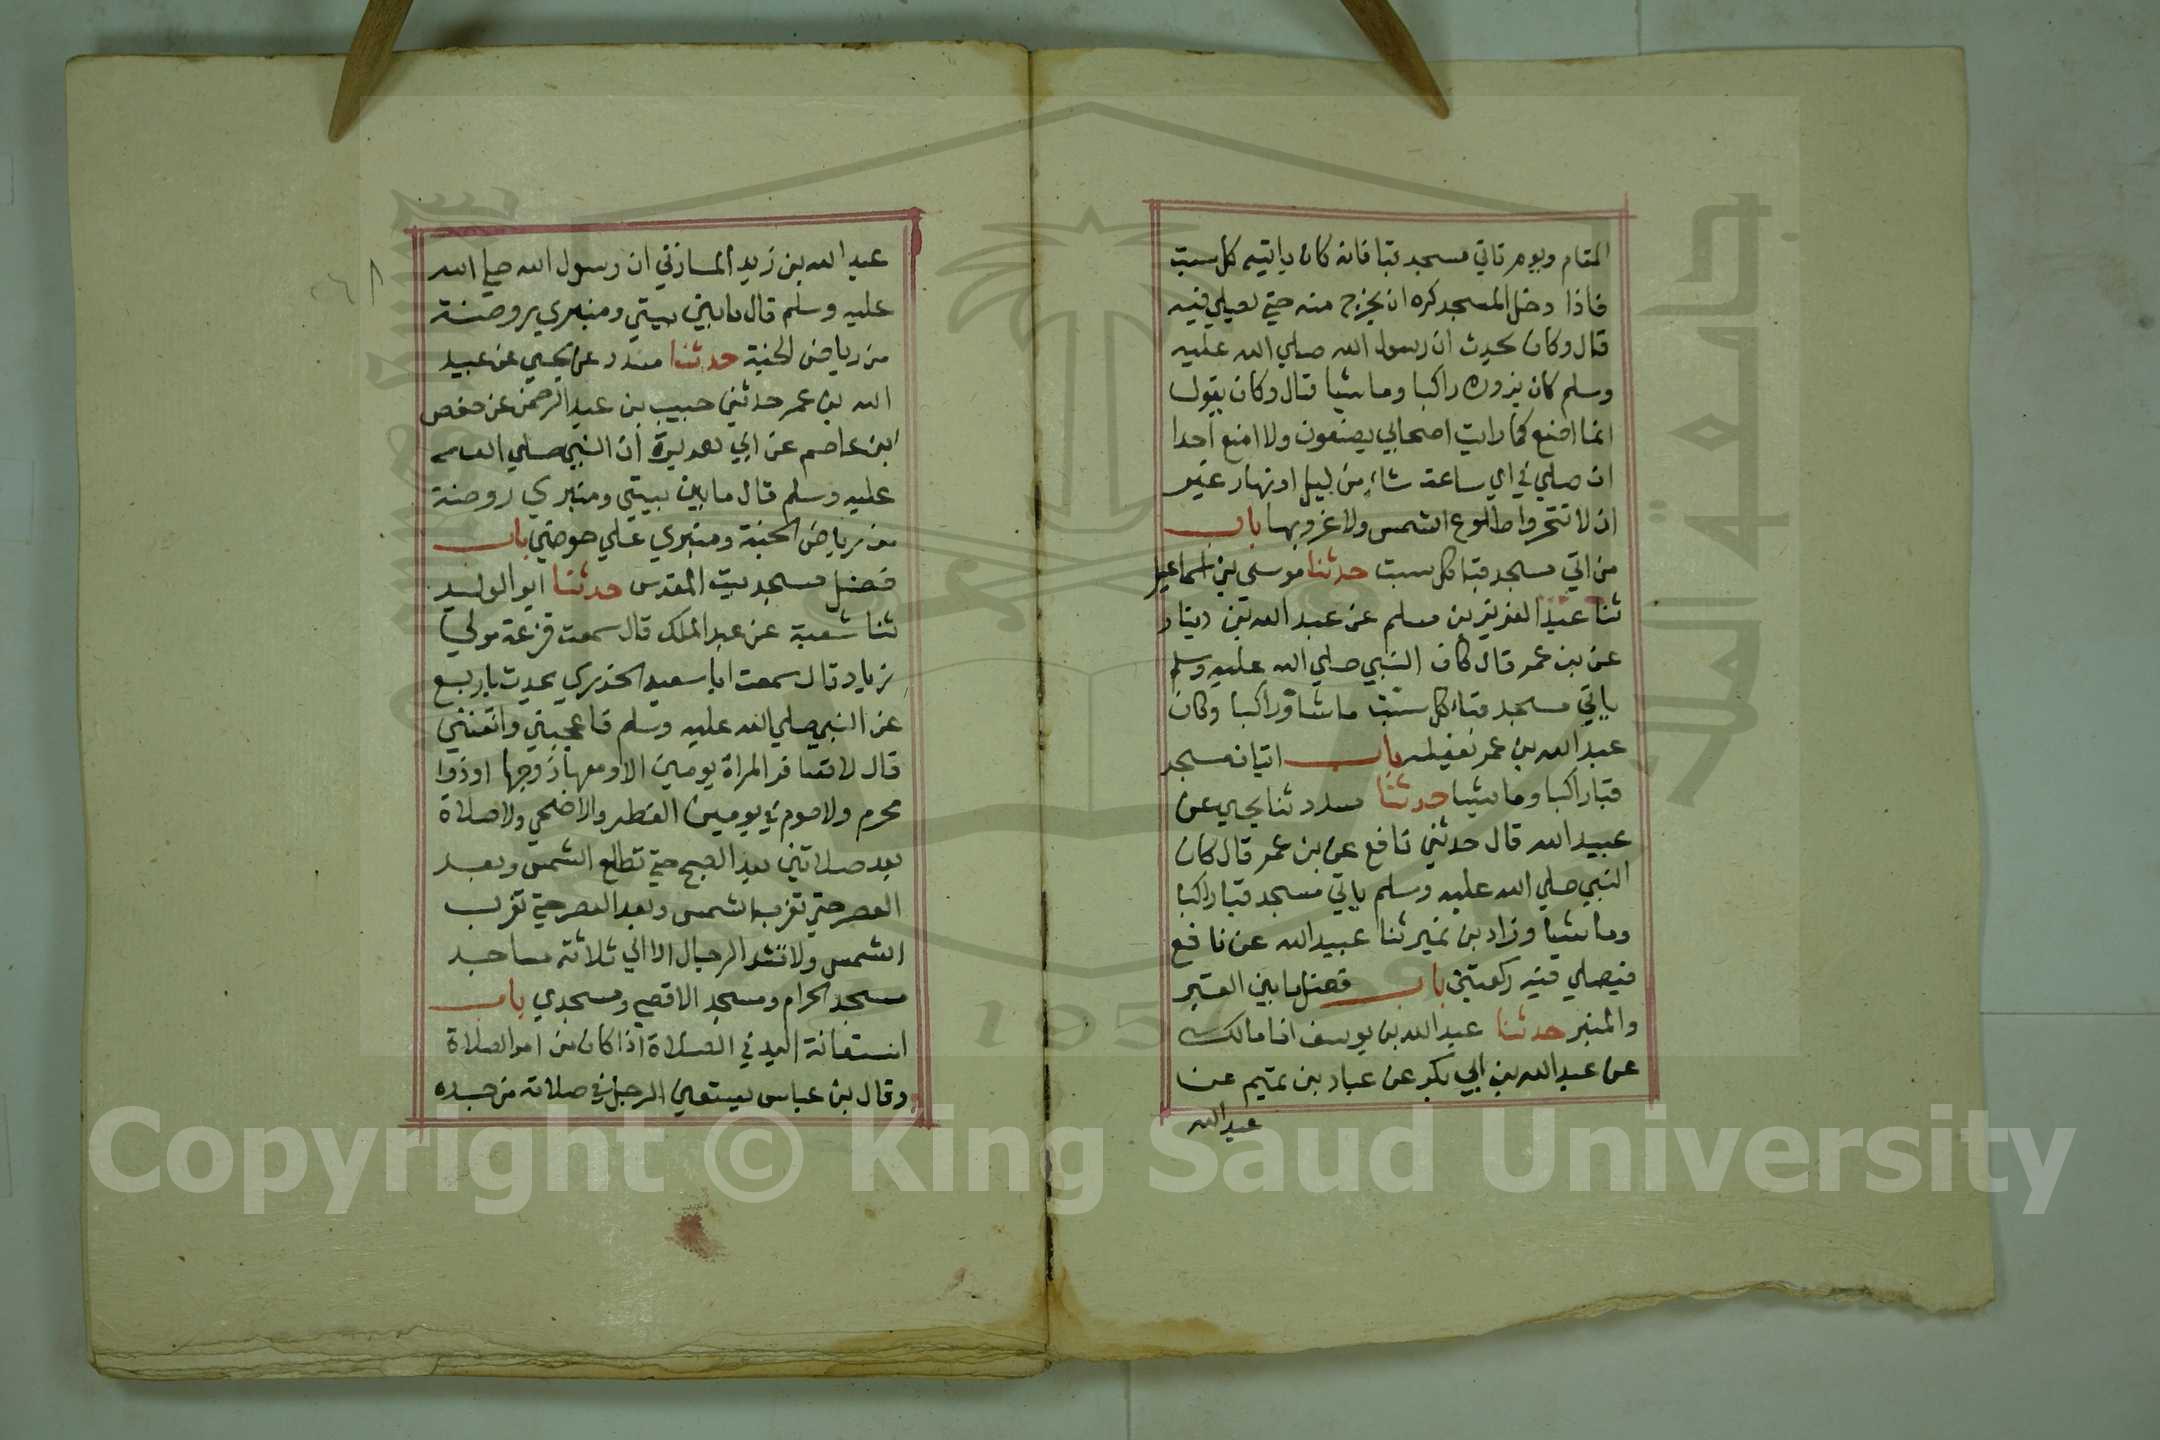 المقام ويوم تاتي مسجد قبا فانه كان ياتيه كل سبت
فاذا دخل المسجد كره ان يخرج منه حتي يصلي فيه
قال وكان يحدث ان رسول الله صلي الله عليه
وسلم كان يزوره راكبا وماشيا قال وكان يقول
انما اصنع كما رايت اصحابي يصنعون ولا امنع احدا
ان صلي في اي ساعة شاء من ليل او نهار غير
ان لا تتحروا طلوع الشمس ولا غروبها باب
من اتي مسجد قبا كل سبت حدثنا موسي بن اسماعيل
ثنا عبد العزيز بن مسلم عن عبد الله بن دينار
عن بن عمر قال كان النبي صلي الله عليه وسلم
ياتي مسجد قباء كل سبت ماشا وراكبا وكان
عبد الله بن عمر يفعله باب اتيان مسجد
قبا راكبا وماشيا حدثنا مسدد ثنا يحيي عن
عبيد الله قال حدثني نافع عن بن عمر قال كان
النبي صلي الله عليه وسلم ياتي مسجد قبا راكبا
وماشيا وزاد بن نمير ثنا عبيد الله عن نافع
فيصلي فيه ركعتين باب فضل ما بين القبر
والمنبر حدثنا عبد الله بن يوسف انا مالك
عن عبد الله بن ابي بكر عن عباد بن تميم عن
عبد الله
عبد الله بن زيد المازني ان رسول الله صلي الله
عليه وسلم قال ما بين بيتي ومنبري روضة
من رياض الجنة حدثنا مسدد عن يحيي عن عبيد
الله بن عمر حدثني حبيب بن عبد الرحمن عن حفص
ابن عاصم عن ابي هريرة ان النبي صلي الله
عليه وسلم قال ما بين بيتي ومنبري روضة
من رياض الجنة ومنبري علي حوضي باب
فضل مسجد بيت المقدس حدثنا ابو الوليد
ثنا شعبة عن عبد الملك قال سمعت قزعة مولي
زياد قال سمعت ابا سعيد الخدري يحدث باربع
عن النبي صلي الله عليه وسلم فاعجبني وانقنني
قال لا تسافر المراة يومين الا ومعها زوجها او ذوا
محرم ولا صوم في يومين الفطر والاضحي ولا صلاة
بعد صلاتين بعد الصبح حتي تطلع الشمس وبعد
العصر حتي تغرب الشمس وبعد العصر حتي تغرب
الشمس ولا تشد الرحال الا الي ثلاثة مساجد
مسجد الحرام ومسجد الاقصي ومسجدي باب
استعانة اليد في الصلاة اذا كان من امر الصلاة
وقال بن عباس يستعين الرجل في صلاته من جسده
جامعة الملك سعود
1957
Copyright © King Saud University